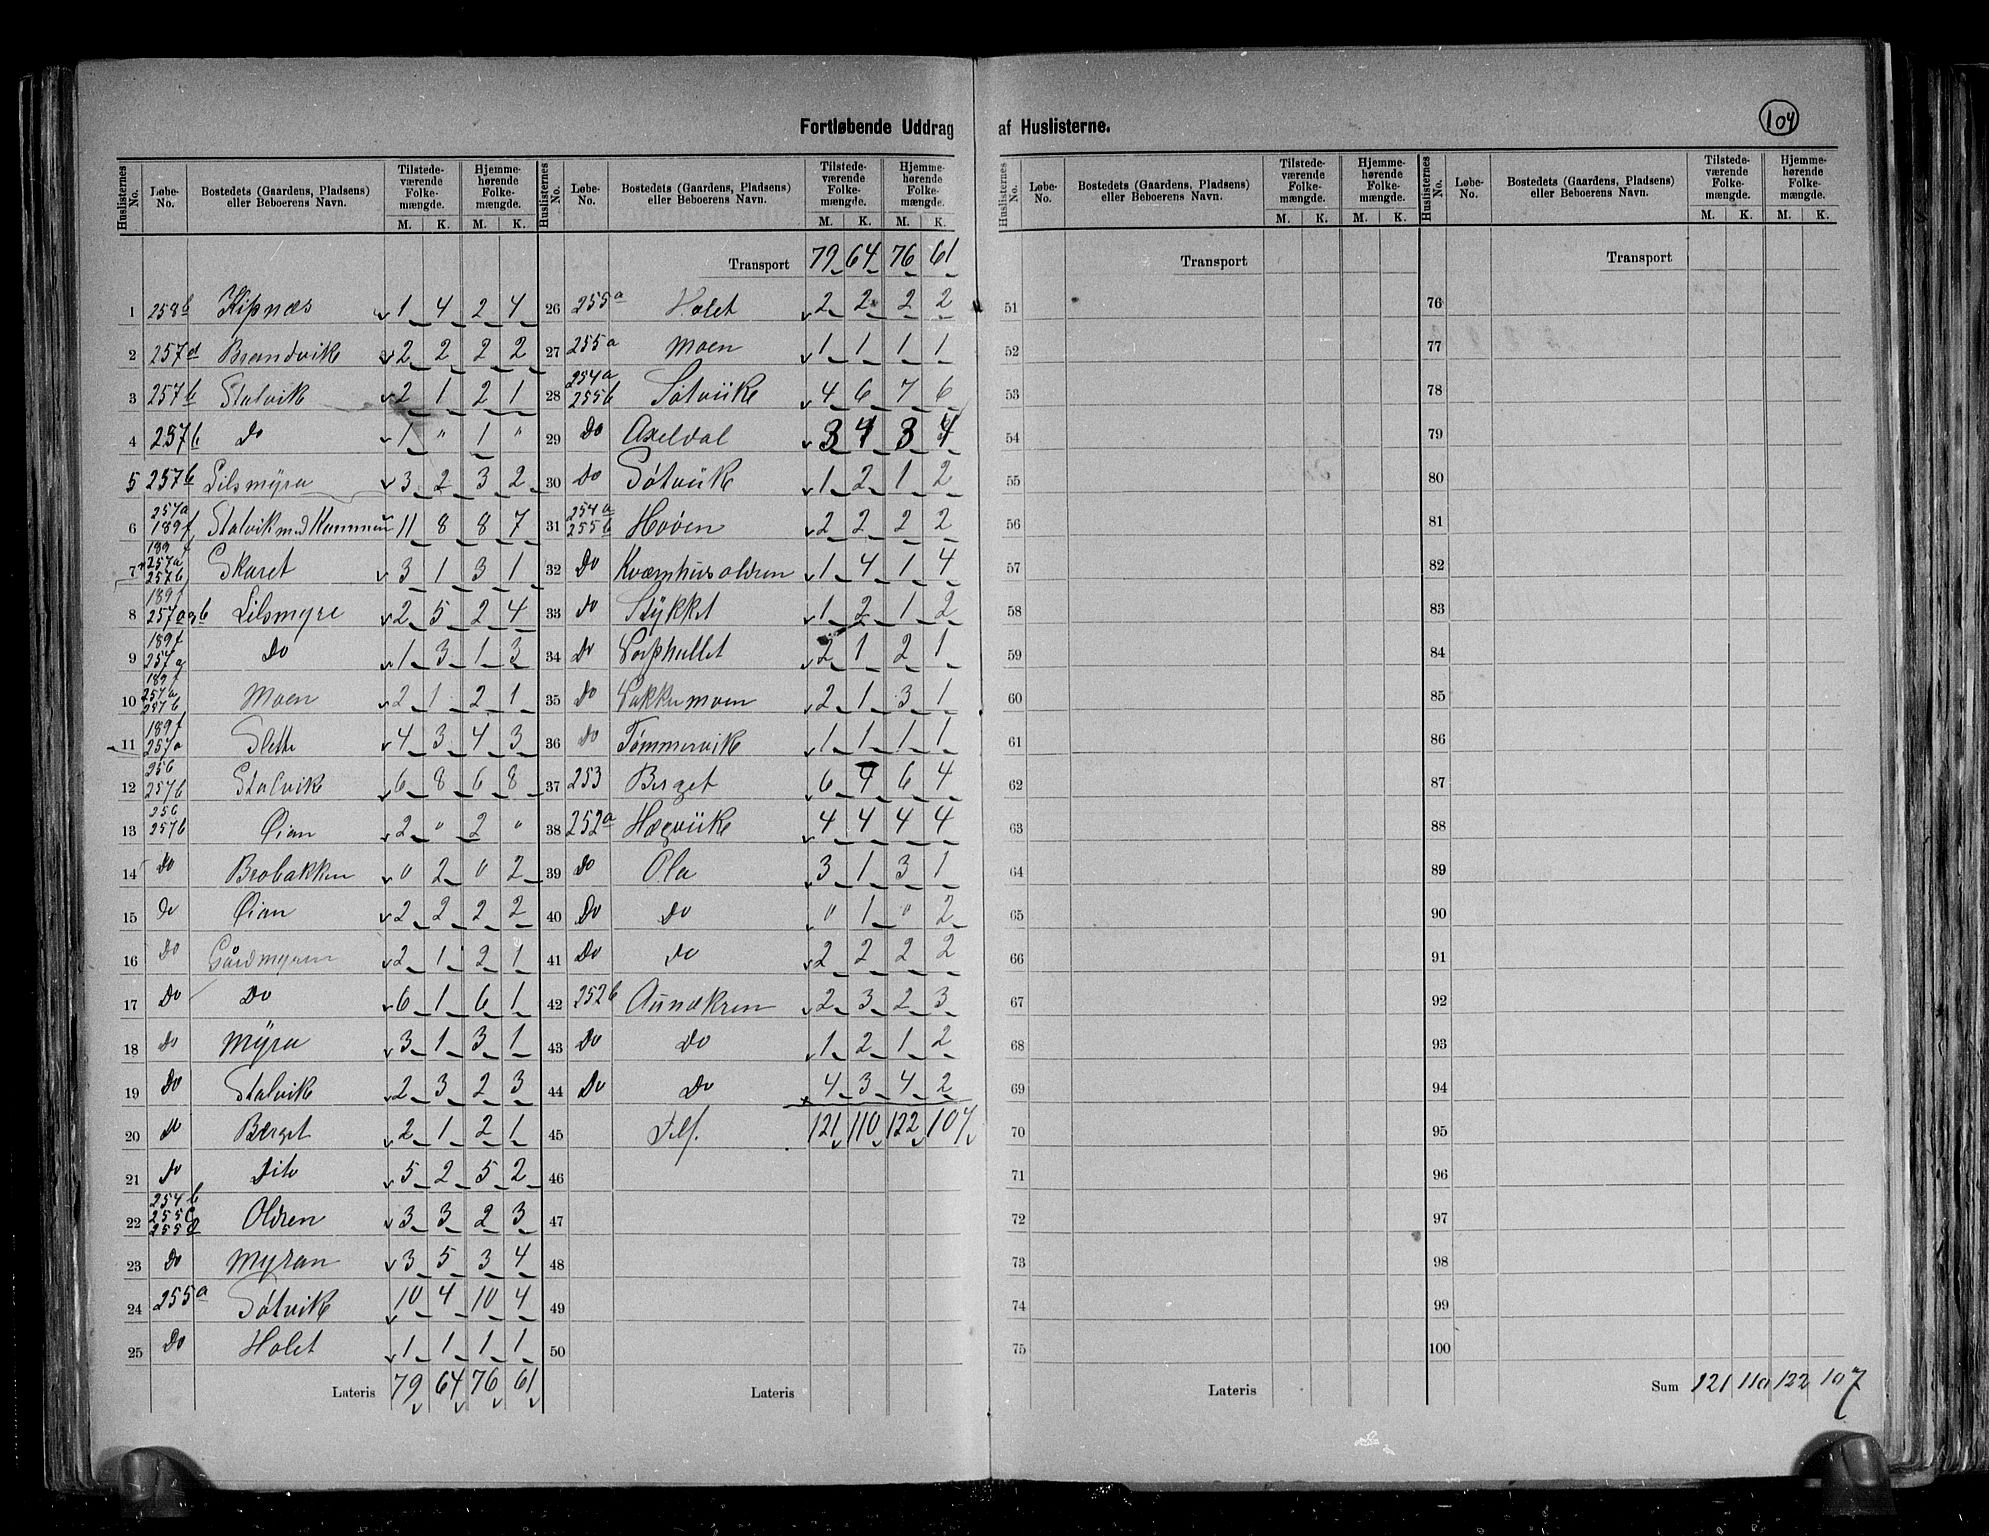 Fortløbende Uddrag af Huslisterne.
104
Huslisternes No. Løbe-No. Bostedets (Gaardens, Pladsen) eller Beboerens Navn. Tilstedeværende Folkemængde. M. K. Hjemmehørende Folkemængde. M. K.
1 258b Kipnæs 1 4 2 4
2 257d Brandvik 2 2 2 2
3 257b Stalvik 2 1 2 1
4 257b Do 1 " 1 "
5 257b Lilsmyra 3 2 3 2
6 257a 189f Stalvik med 11 8 8 7
7 189f 257a 257b Skaret 3 1 3 1
8 189f 257a & b Lilsmyre 2 5 2 4
9 189f 257a Do 1 3 1 3
10 189f 257a 257b Moen 2 1 2 1
11 189f 257a Slette 4 3 4 3
12 256 257b Stalvik 6 8 6 8
13 256 257b Øian 2 " 2 "
14 Do Brobakken " 2 " 2
15 Do Øian 2 2 2 2
16 Do Gårdmyren 2 1 2 1
17 Do Do 6 1 6 1
18 Do Myra 3 1 3 1
19 Do Stalvik 2 3 2 3
20 Do Berget 2 1 2 1
21 Do Dito 5 2 5 2
22 254b 255c 255d Oldren 3 3 2 3
23 Do Myran 3 5 3 4
24 255a Søtvik 10 4 10 4
25 Do Holet 1 1 1 1
Lateris 79 64 76 61
Huslisternes No. Løbe-No. Bostedets (Gaarden, Pladsen) eller Beboerens Navn. Tilstedeværende Folkemængde. M. K. Hjemmehørende Folkemængde. M. K.
Transport 79 64 76 61
26 255a Holet 2 2 2 2
27 255a Moen 1 1 1 1
28 254a 255b Søtviik 4 6 7 6
29 Do Axeldal 3 4 3 4
30 Do Søtviik 1 2 1 2
31 254a 255b Høven 2 2 2 2
32 Do Kværnhusoldren 1 4 1 4
33 Do Stykket 1 2 1 2
34 Do 2 1 2 1
35 Do 2 1 3 1
36 Do Tømmervik 1 1 1 1
37 253 Berget 6 4 6 4
38 252a Hægviik 4 4 4 4
39 Do Ola 3 1 3 1
40 Do Do " 1 " 2
41 Do Do 2 2 2 2
42 252b Aunekren 2 3 2 3
43 Do Do 1 2 1 2
44 Do Do 4 3 4 2
45 Tils. 121 110 122 107
46
47
48
49
50
Lateris
Huslisternes No. Løbe-No. Bostedets (Gaardens, Pladsens) eller Beboerens Navn. Tilstedeværende Folkemængde. M. K. Hjemmehørende Folkemængde. M. K.
Transport
51
52
53
54
55
56
57
58
59
60
61
62
63
64
65
66
67
68
69
70
71
72
73
74
75
Lateris
Huslisternes No. Løbe-No. Bostedets (Gaardens, Pladsens) eller Beboerens Navn. Tilstedeværende Folkemængde. M. K. Hjemmehørende Folkemængde. M. K.
Transport
76
77
78
79
80
81
82
83
84
85
86
87
88
89
90
91
92
93
94
95
96
97
98
99
100
Sum 121 110 122 107